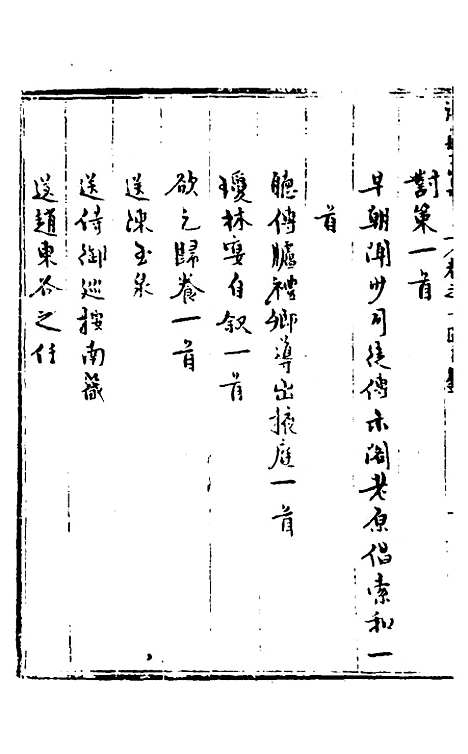 對策一首
早朝聞少司徒傳示閣老原倡索和一
首
聽傳臚禮卿導出掖庭一首
瓊林宴自叙一首
欲乞歸養一首
送陳玉泉
送侍御巡按南畿
送趙東谷之任